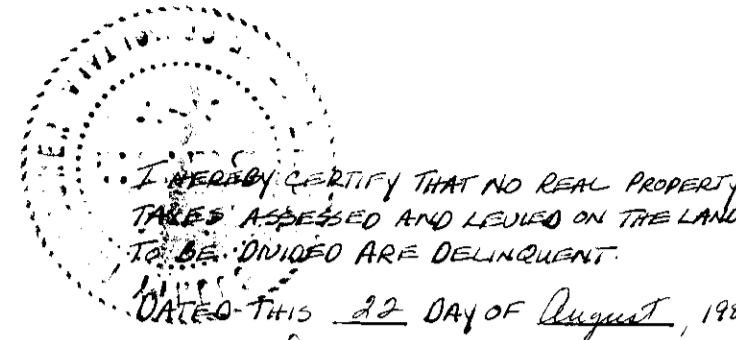 I HEREBY CERTIFY THAT NO REAL PROPERTY
TAXES ASSESSED AND LEVIED ON THE LAND
TO BE DIVIDED ARE DELINQUENT.
DATED THIS 22 DAY OF August, 198